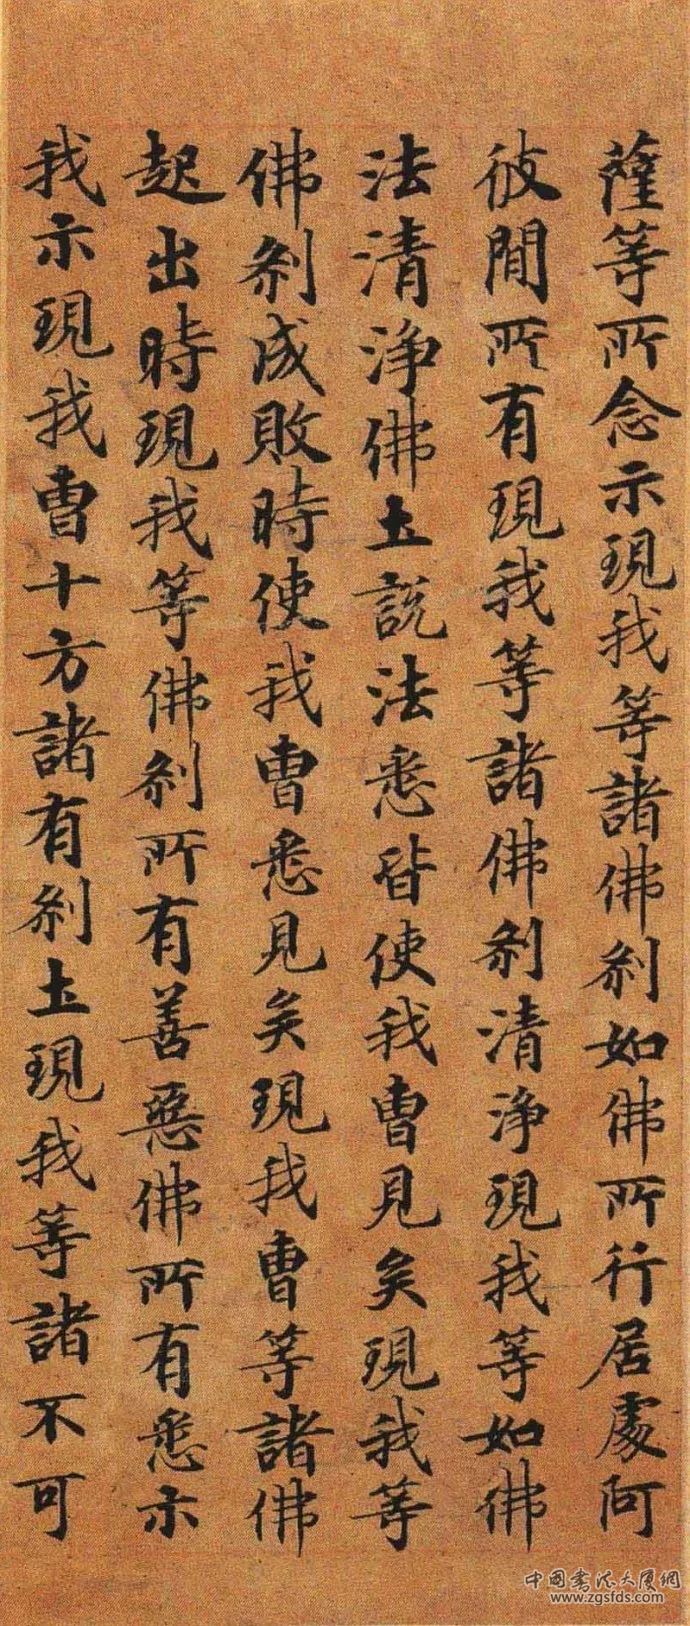 薩等所念示現我等諸佛刹如佛所行居處阿
彼間所有現我等諸佛刹清淨現我等如佛
法清淨佛土說法悉皆使我曹見矣現我等
佛刹成敗時使我曹悉見矣現我曹等諸佛
起出時現我等佛刹所有善惡佛所有悉示
我示現我曹十方諸有刹土現我等諸不可
中国书法大厦網
www.zgsfds.com